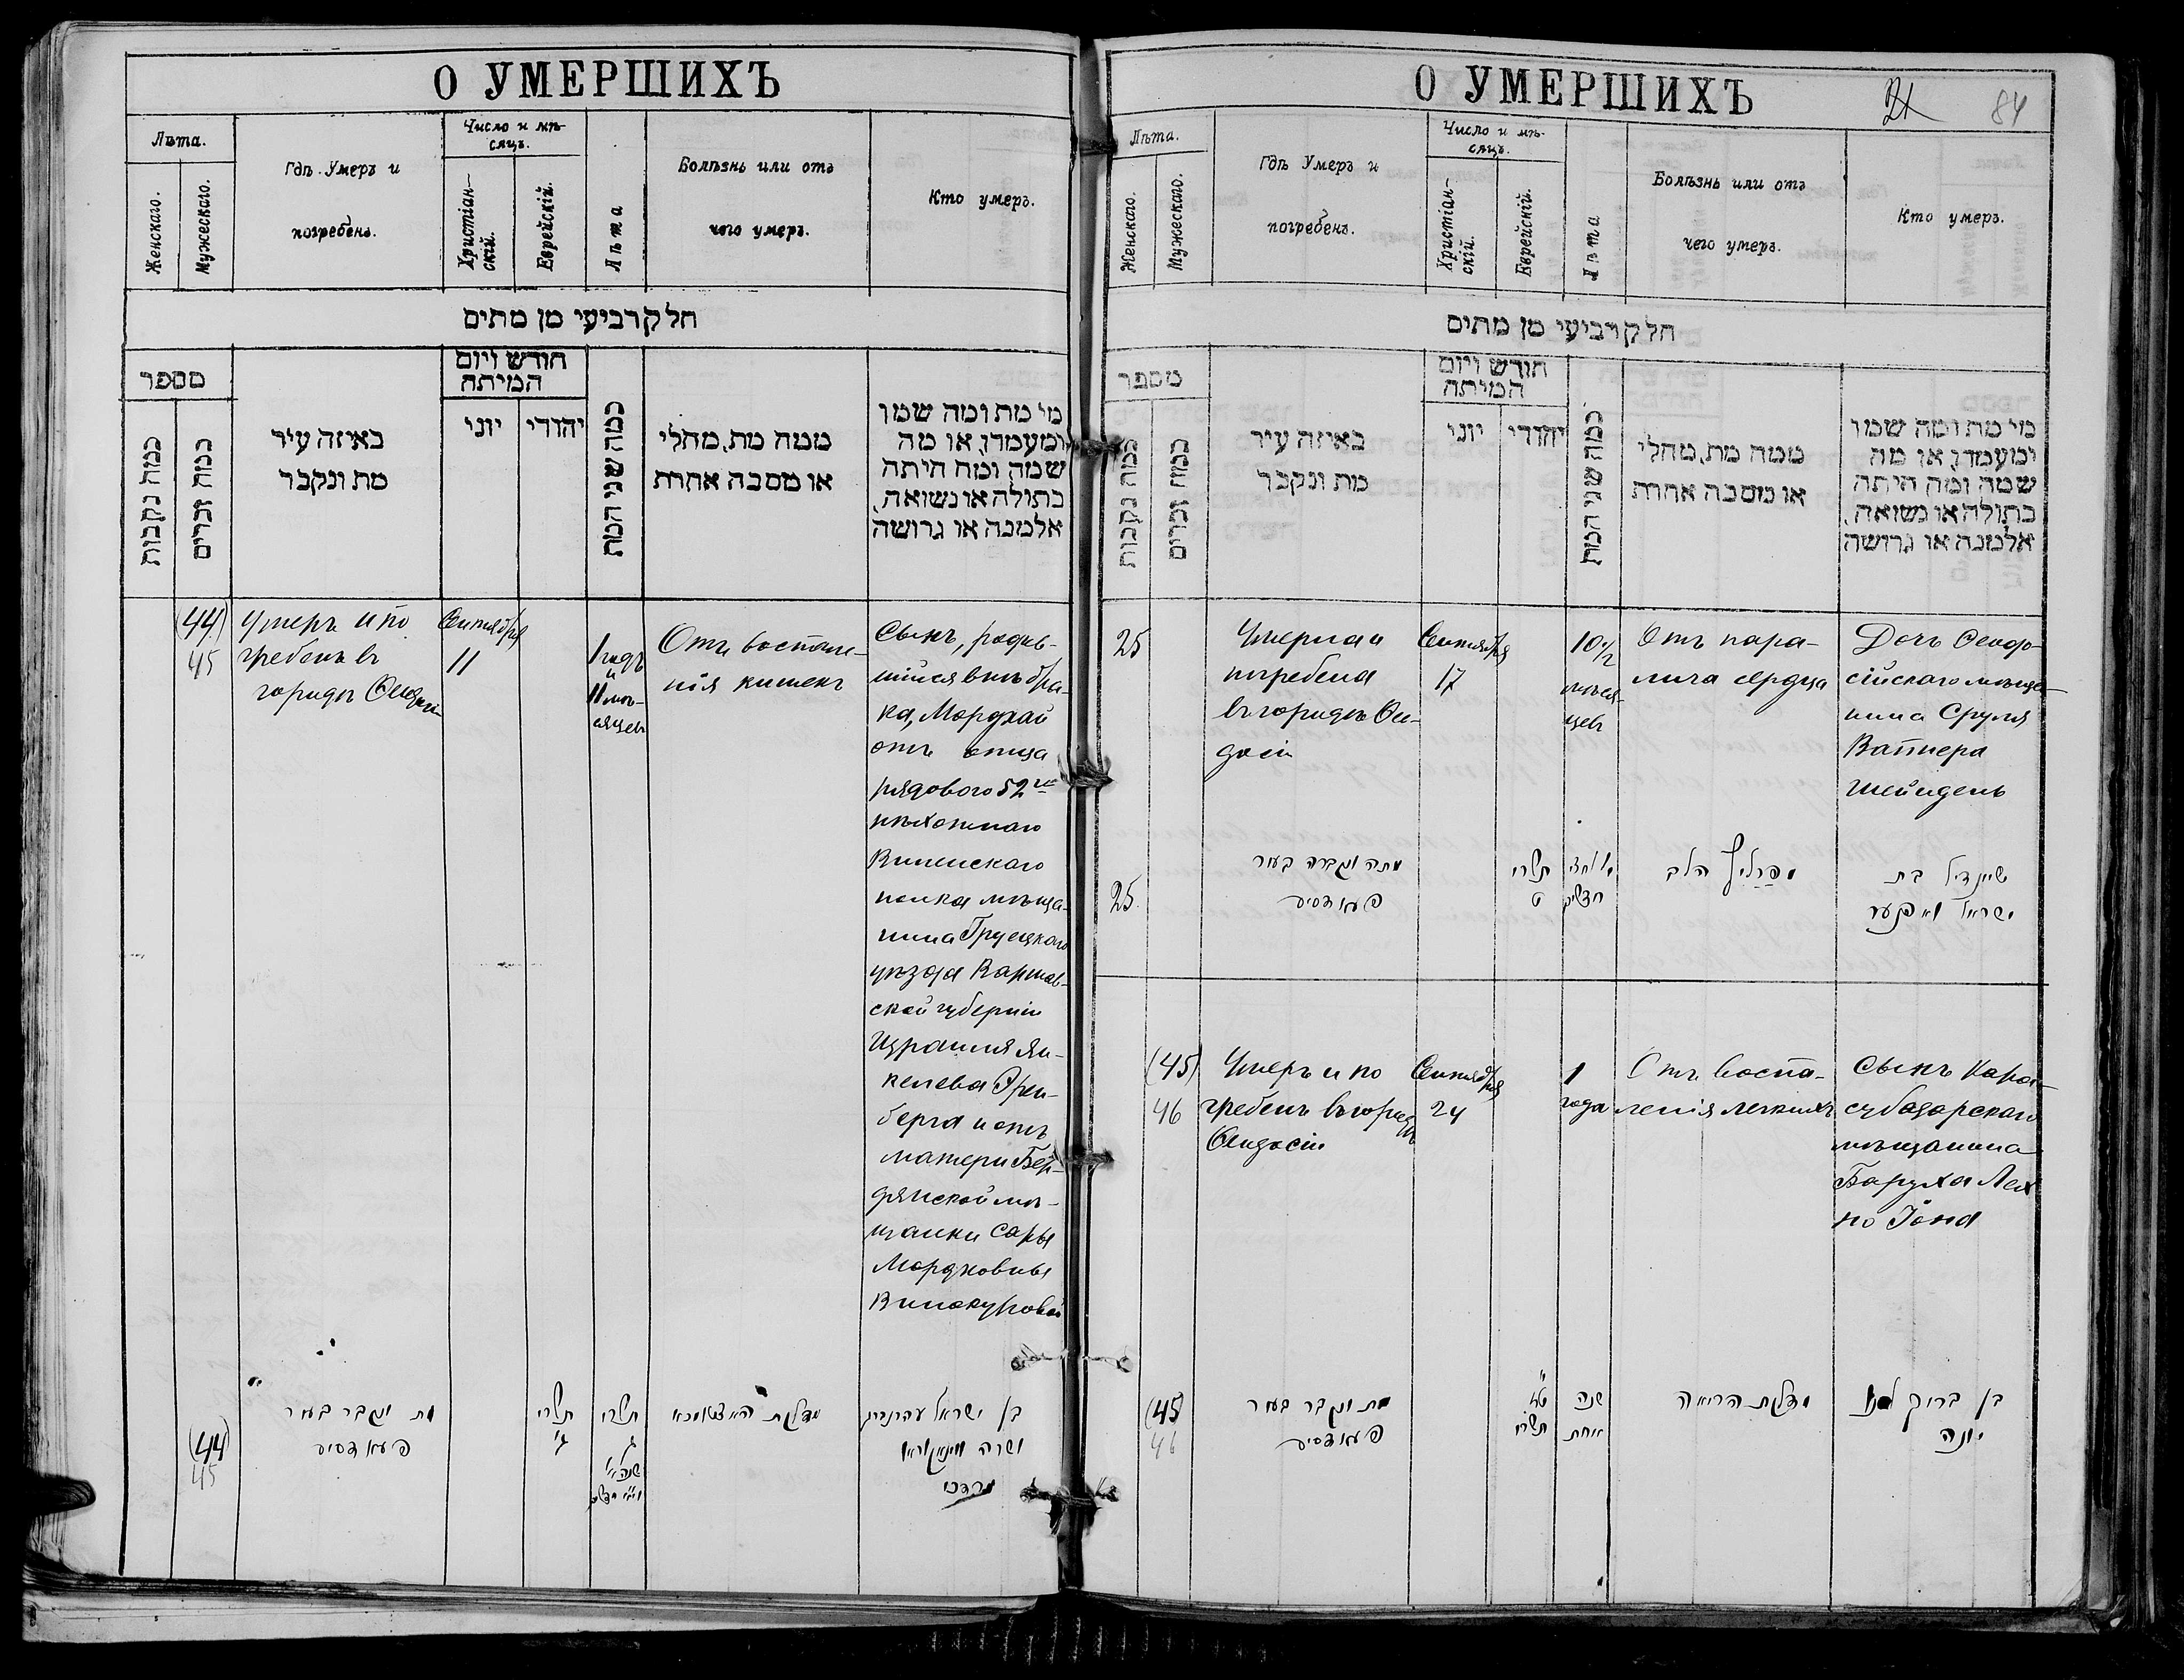 О УМЕРШИХЪ
Лѣта.
Женскаго.
Мужескаго.
Гдѣ Умеръ и
погребенъ.
Число и мѣ-
сяцъ.
Христіан-
скій.
Еврейскій.
Лѣта
Болѣзнь или отъ
чего умеръ.
Кто умеръ.
חלק רביעי מן מתים
מספר
כמה נקבות
כמה זכרים
באיזה עיר
מת ונקבר
חודש ויום
המיתה
יוני
יהודי
כמה שני המת
ממה מת, מחלי
או מסבה אחרת
מי מת ומה שמו
ומעמדו, או מה
שמה ומה היתה
בתולה או נשואה,
אלמנה או גרושה
(44)
45
Умеръ и по
гребенъ въ
городѣ
Сентября
11
1 годъ
и
11 мѣ-
сяцевъ
Отъ воспале-
нія кишекъ
Сынъ, родив-
шійся внѣ бра-
ка, Мордхай
отъ отца
рядового 52го
пѣхотнаго
Виленскаго
полка мѣща-
нина Груецкаго
уѣзда Варшав-
ской губерніи
Израиля Ян-
келева Эрен-
берга и отъ
матери Бер-
дянской мѣ-
щанки Сары
Мордковны
Винокуровой
(44)
45
מת ונקבר בעיר
פעאדסיע
תשרי
תשרי
מדלקת
בן ישראל
ושרה
מרדכי
О УМЕРШИХЪ
21
84
Лѣта.
Женскаго.
Мужескаго.
Гдѣ Умеръ и
погребенъ.
Число и мѣ-
сяцъ.
Христіан-
скій.
Еврейскій.
Лѣта
Болѣзнь или отъ
чего умеръ.
Кто умеръ.
חלק רביעי מן מתים
מספר
כמה נקבות
כמה זכרים
באיזה עיר
מת ונקבר
חודש ויום
המיתה
יוני
יהודי
כמה שני המת
ממה מת, מחלי
או מסבה אחרת
מי מת ומה שמו
ומעמדו, או מה
שמה ומה היתה
בתולה או נשואה,
אלמנה או גרושה
25
Умерла и
погребена
въ городѣ Ѳео-
досіи
Сентября
17
10 1/2
мѣся-
цевъ
Отъ пара-
лича сердца
Дочь Ѳеодо-
сійскаго мѣща-
нина Сруля
Вапнера
Шейндель
25
מתה ונקברה בעיר
פעאדסיע
תשרי
ט
חדשים
הלב
שיינדיל בת
ישראל וואפנער
(45)
46
Умеръ и по
гребенъ въ городѣ
Ѳеодосіи
Сентября
24
1
года
Отъ воспа-
ленія легкихъ
Сынъ Кара-
субазарскаго
мѣщанина
Баруха Лех
но Іона
(45)
46
מת ונקבר בעיר
פעאדסיע
תשרי
שנה
אחת
מדלקת הריאה
בן ברוך לחנו
יונה